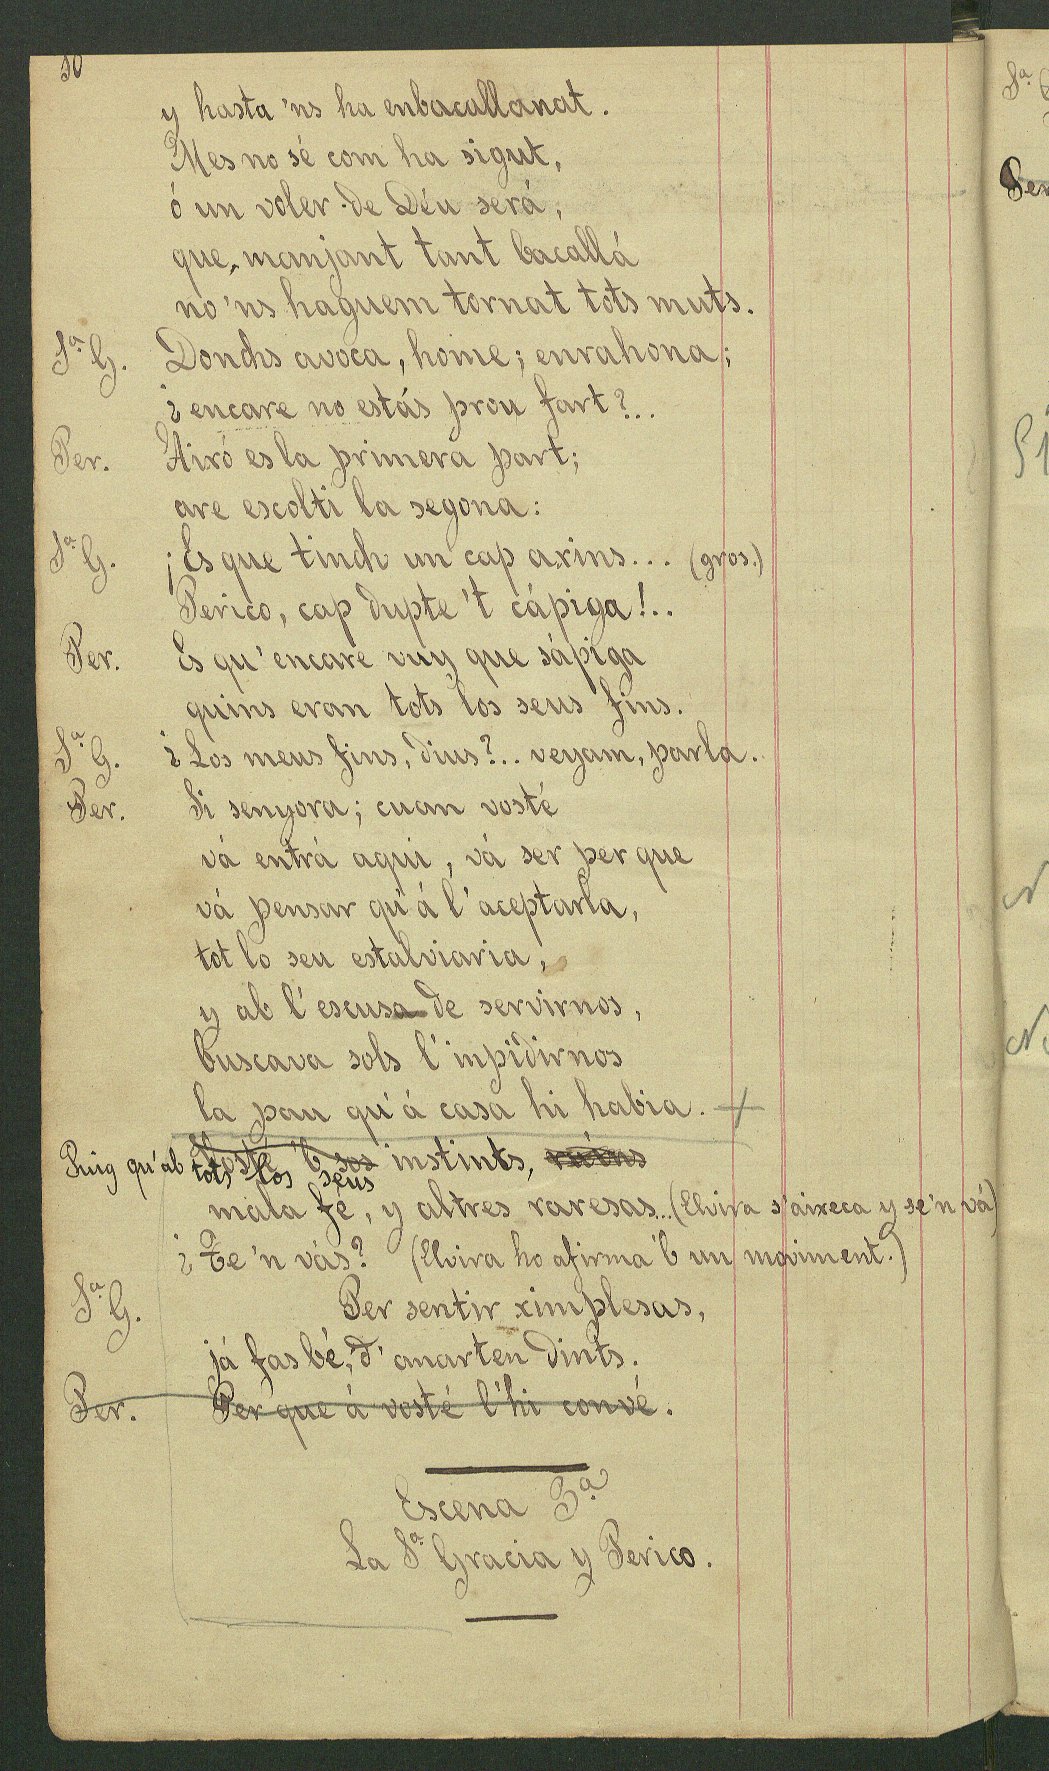 30
y hasta 'ns ha enbacallanat.
Mes no sé com ha sigut,
ó un voler de Déu será,
que, manjant tant bacallá
no 'ns haguem tornat tots muts.
Sª G. Donchs avoca, home; enrahona;
¿encare no estás prou fart?..
Per. Aixó es la primera part;
are escolti la segona:
Sª G. ¡Es que tinch un cap axins... (gros.)
Perico, cap dupte 't cápiga!..
Per. Es qu' encare vuy que sápiga
quins eran tots los seus fins.
Sª G. ¿Los meus fins, dius?.. veyam, parla.
Per. Si senyora; cuan vosté
vá entrá aqui, vá ser per que
vá pensar qu' á l' aceptarla,
tot lo seu estalviaria,
y ab l' escusa de servirnos,
buscava sols l' inpidirnos
la pau qu' á casa hi habia. +
Vosté 'b sos instints, ruins
Puig qu' ab tots los seus
mala fé, y altres raresas... (Elvira s' aixeca y se 'n vá)
¿Te 'n vás? (Elvira ho afirma 'b un moviment.)
Sª G. Per sentir ximplesas,
já fas bé, d' anarten dints.
Per. Per que á vosté l' hi convé.
Escena 3ª
La Sª Gracia y Perico.
Sª
Per